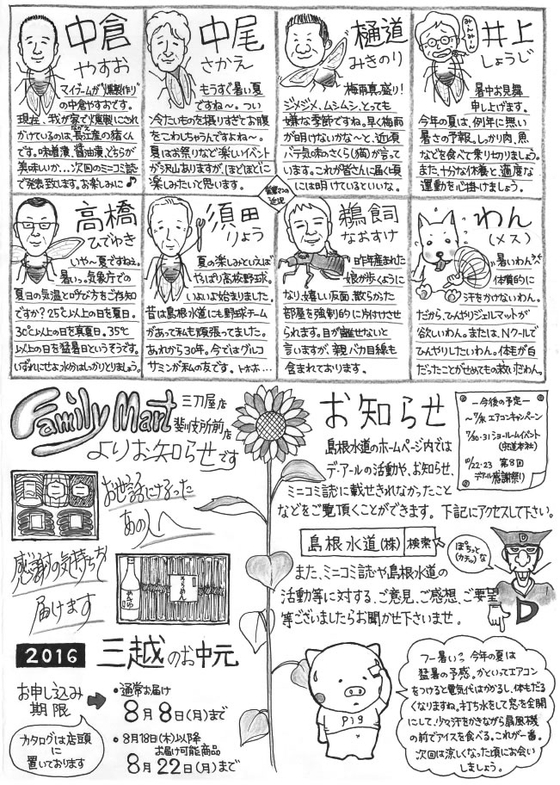 中倉
やすお
マイブームが“燻製作り”
の中倉やすおです。
現在、我が家で燻製にされ
かけているのは、長江産の猪くん
です。味噌漬、醤油漬、どちらが
美味いか…次回のミニコミ誌
で発表致します。お楽しみに♪
中尾
さかえ
もうすぐ暑い夏
ですね〜。つい
冷たいものを摂りすぎとお腹
をこわしちゃうんですよね〜。
夏はお祭りなど楽しいイベント
が沢山ありますが、ほどほどに
楽しみたいと思います。
樋道
みきのり
梅雨真盛り!
ジメジメ、ムシムシ、とっても
嫌な季節ですね。早く梅雨
が明けないかな〜と、近頃
バテ気味のさくら(猫)が言って
います。これが皆さんに届く頃
には明けているといいな。
井上
しょうじ
暑中お見舞
申し上げます。
今年の夏は、例年に無い
暑さの予報。しっかり肉、魚
などを食べて乗り切りましょう。
また、十分な休養と適度な
運動を心掛けましょう。
営業マンの
近況
高橋
ひでゆき
いや〜夏ですね。
暑いっ。気象庁での
夏日の気温と呼び方をご存知
ですか?25℃以上の日を夏日。
30℃以上の日を真夏日。35℃
以上の日を猛暑日というそうです。
いずれにせよ水分はしっかりとりましょう。
須田
りょう
夏の楽しみといえば
やっぱり高校野球。
いよいよ始まりました。
昔は島根水道にも野球チーム
があって私も頑張ってました。
あれから30年。今ではグルコ
サミンが私の友です。トホホ…
鵜飼
なおすけ
昨年産まれた
娘が歩くように
なり、嬉しい反面、散らかった
部屋を強制的に片付けさせ
られます。目が離せないと
言いますが、親バカ目線も
含まれております。
わん
(メス)
暑いわん
体質的に
汗をかけないわん。
だから、ひんやりジェルマットが
欲しいわん。または、Nクールで
ひんやりしたいわん。体毛が白
だったことがせめてもの救いだわん。
Family Mart
三刀屋店
斐川役所前店
よりお知らせです
お世話になった
あの人へ
感謝の気持ちを
届けます
2016 三越のお中元
お申し込み
期限
・通常お届け
8月8日(月)まで
・8月18日(木)以降
お届け可能商品
8月22日(月)まで
カタログは店頭
に
置いております
お知らせ
島根水道のホームページ内では
デ・アールの活動や、お知らせ、
ミニコミ誌に載せきれなかったこと
などをご覧頂くことができます。下記にアクセスして下さい。
島根水道(株) 検索
また、ミニコミ誌や島根水道の
活動等に対する、ご意見、ご感想、ご要望
等ございましたらお聞かせ下さいませ。
ー今後の予定ー
エアコンキャンペーン
ショールームイベント
(宍道本社)
10/22・23 第8回
デアール感謝祭り
ぽちっと
(カチッ)な
D
P19
フー暑いっ。今年の夏は
猛暑の予感。かといってエアコン
をつけると電気代はかかるし、体もだる
くなりますね。打ち水をして窓を全開
にして、少々汗をかきながら扇風機
の前でアイスを食べる。これが一番。
次回は涼しくなった頃にお会い
しましょう。